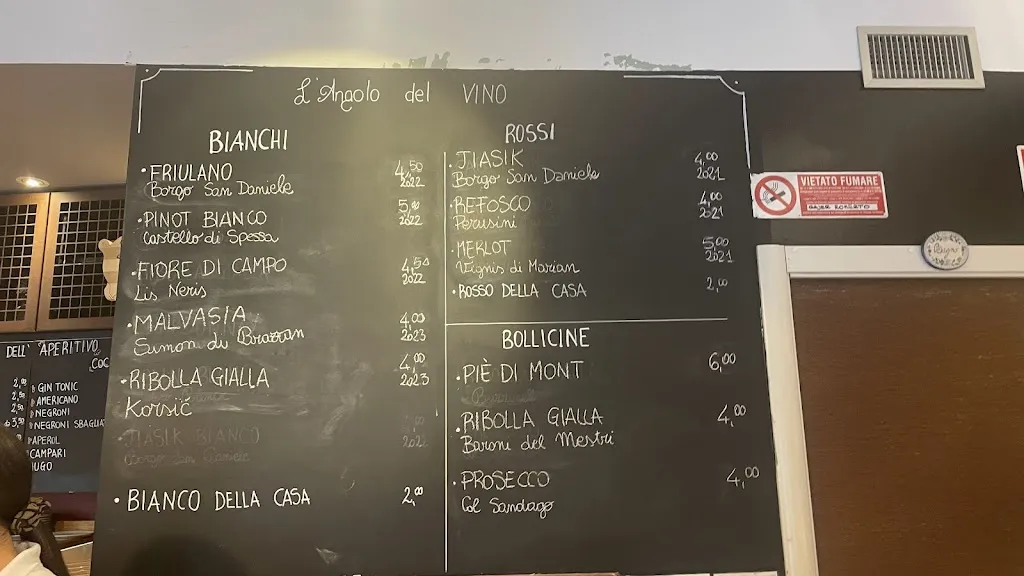 L'Angolo del VINO
BIANCHI
• FRIULANO 4,50
Borgo San Daniele 2022
• PINOT BIANCO 5,00
Castello di Spessa 2022
• FIORE DI CAMPO 4,50
Lis Neris 2022
• MALVASIA 4,00
Simon di Brazzan 2023
• RIBOLLA GIALLA 4,00
Korsič 2023
JIASIK BIANCO
• BIANCO DELLA CASA 2,00
ROSSI
• JIASIK 4,00
Borgo San Daniele 2021
• REFOSCO 4,00
Perusini 2021
• MERLOT 5,00
Vignis di Marian 2021
• ROSSO DELLA CASA 2,00
BOLLICINE
• PIÈ DI MONT 6,00
• RIBOLLA GIALLA 4,00
Baroni del Mestri
• PROSECCO 4,00
Col Sandago
VIETATO FUMARE
DELL' APERITIVO
GIN TONIC
AMERICANO
NEGRONI
NEGRONI SBAGLIA
APEROL
CAMPARI
HUGO